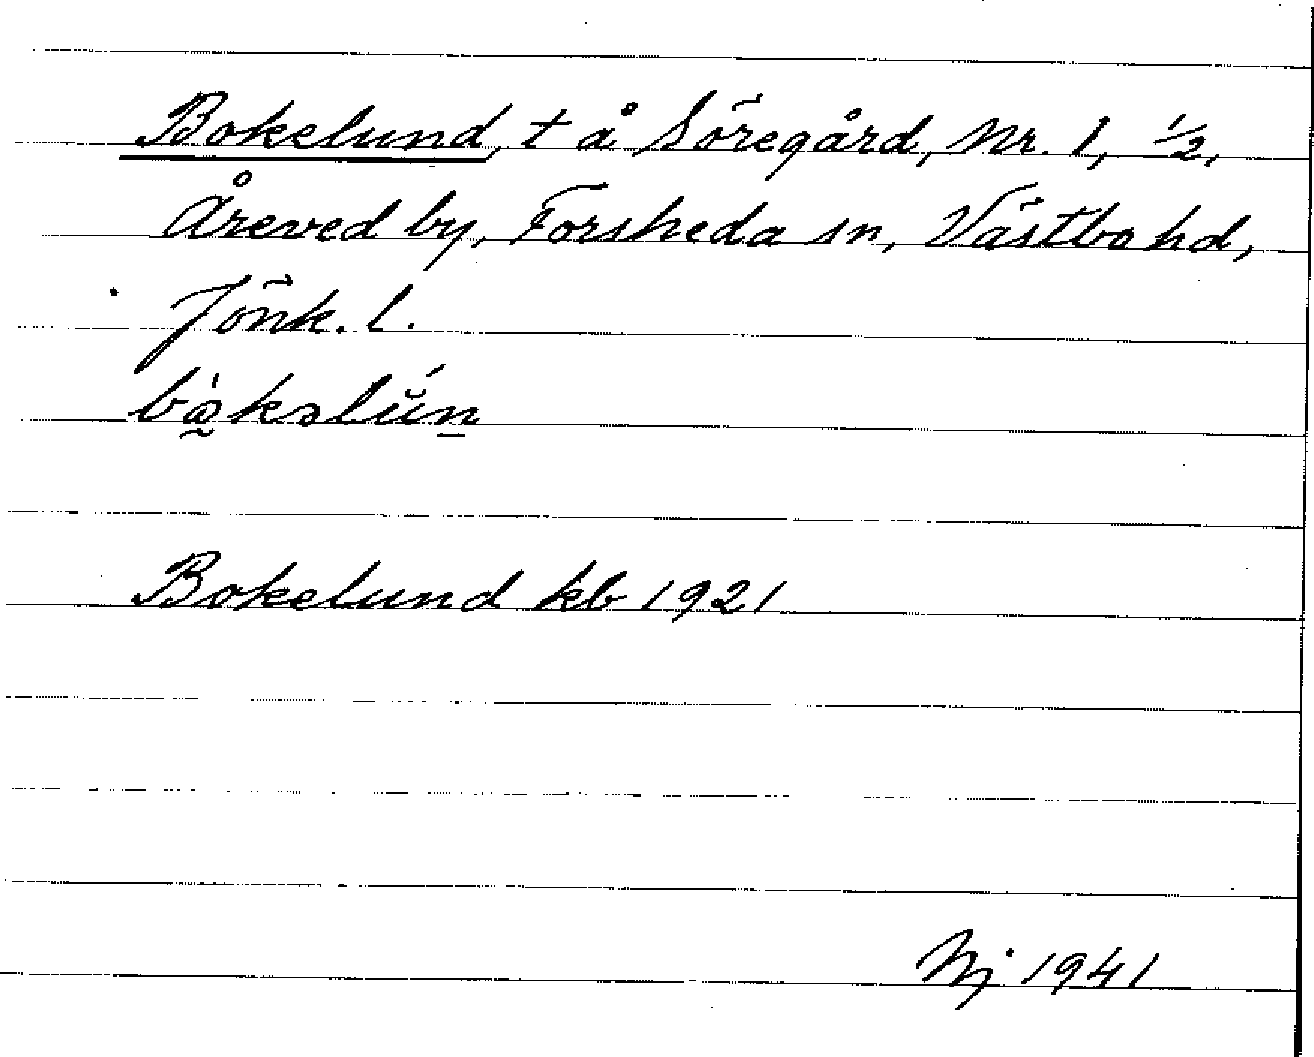 Bokelund, t å Söregård, Nr. 1, 1/2,
Åreved by, Forsheda sn, Västbo hd,
Jönk. l.
Bokelund kb 1921
Nj 1941